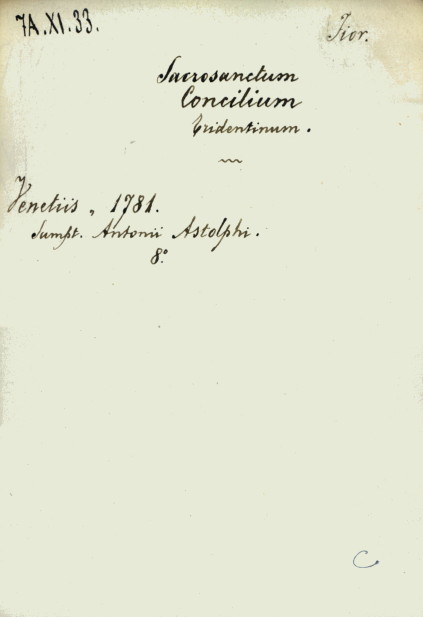 7A.XI.33.
Fior.
Sacrosanctum
Concilium
Tridentinum.
Venetiis, 1781.
Sumpt. Antonii Astolphi.
8.º
C